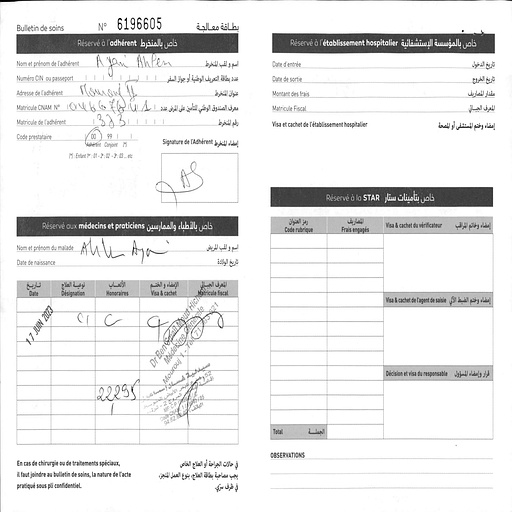 Bulletin de soins N° 6196605 بطاقة معالجة
Réservé à l'adhérent خاص بالمنخرط
Nom et prénom de l'adhérent Ayari Ahlem اسم و لقب المنخرط
Numéro CIN ou passeport عدد بطاقة التعريف الوطنية أو جواز السفر
Adresse de l'adhérent Mourouj عنوان المنخرط
Matricule CNAM N° معرف الصندوق الوطني للتأمين على المرض عدد
Matricule de l'adhérent 333 رقم المنخرط
Code prestataire 00 99
Adhérent Conjoint (*)
(*) : Enfant 1er : 01 - 2 : 02 - 3 : 03... etc
Signature de l'Adhérent إمضاء المنخرط
Réservé aux médecins et praticiens خاص بالأطباء والممارسين
Nom et prénom du malade اسم و لقب المريض
Date de naissance تاريخ الولادة
تاريخ نوعية العلاج الأتعاب الإمضاء و الختم المعرف الجبائي
Date Désignation Honoraires Visa & cachet Matricule fiscal
17 JUIN 2023 C1 C
22295
En cas de chirurgie ou de traitements spéciaux,
il faut joindre au bulletin de soins, la nature de l'acte
pratiqué sous pli confidentiel.
في حالات الجراحة أو العلاج الخاص
يجب مصاحبة بطاقة العلاج، بنوع العمل المنجز،
في ظرف سري.
Réservé à l'établissement hospitalier خاص بالمؤسسة الإستشفائية
Date d'entrée تاريخ الدخول
Date de sortie تاريخ الخروج
Montant des frais مقدار المصاريف
Matricule Fiscal المعرف الجبائي
Visa et cachet de l'établissement hospitalier إمضاء وختم المستشفى أو المصحة
Réservé à la STAR خاص بتأمينات ستار
رمز العنوان المصاريف
Code rubrique Frais engagés
Visa & cachet du vérificateur إمضاء وخاتم المراقب
Visa & cachet de l'agent de saisie إمضاء وختم الضبط الآلي
Décision et visa du responsable قرار وإمضاء المسؤول
Total الجملة
OBSERVATIONS